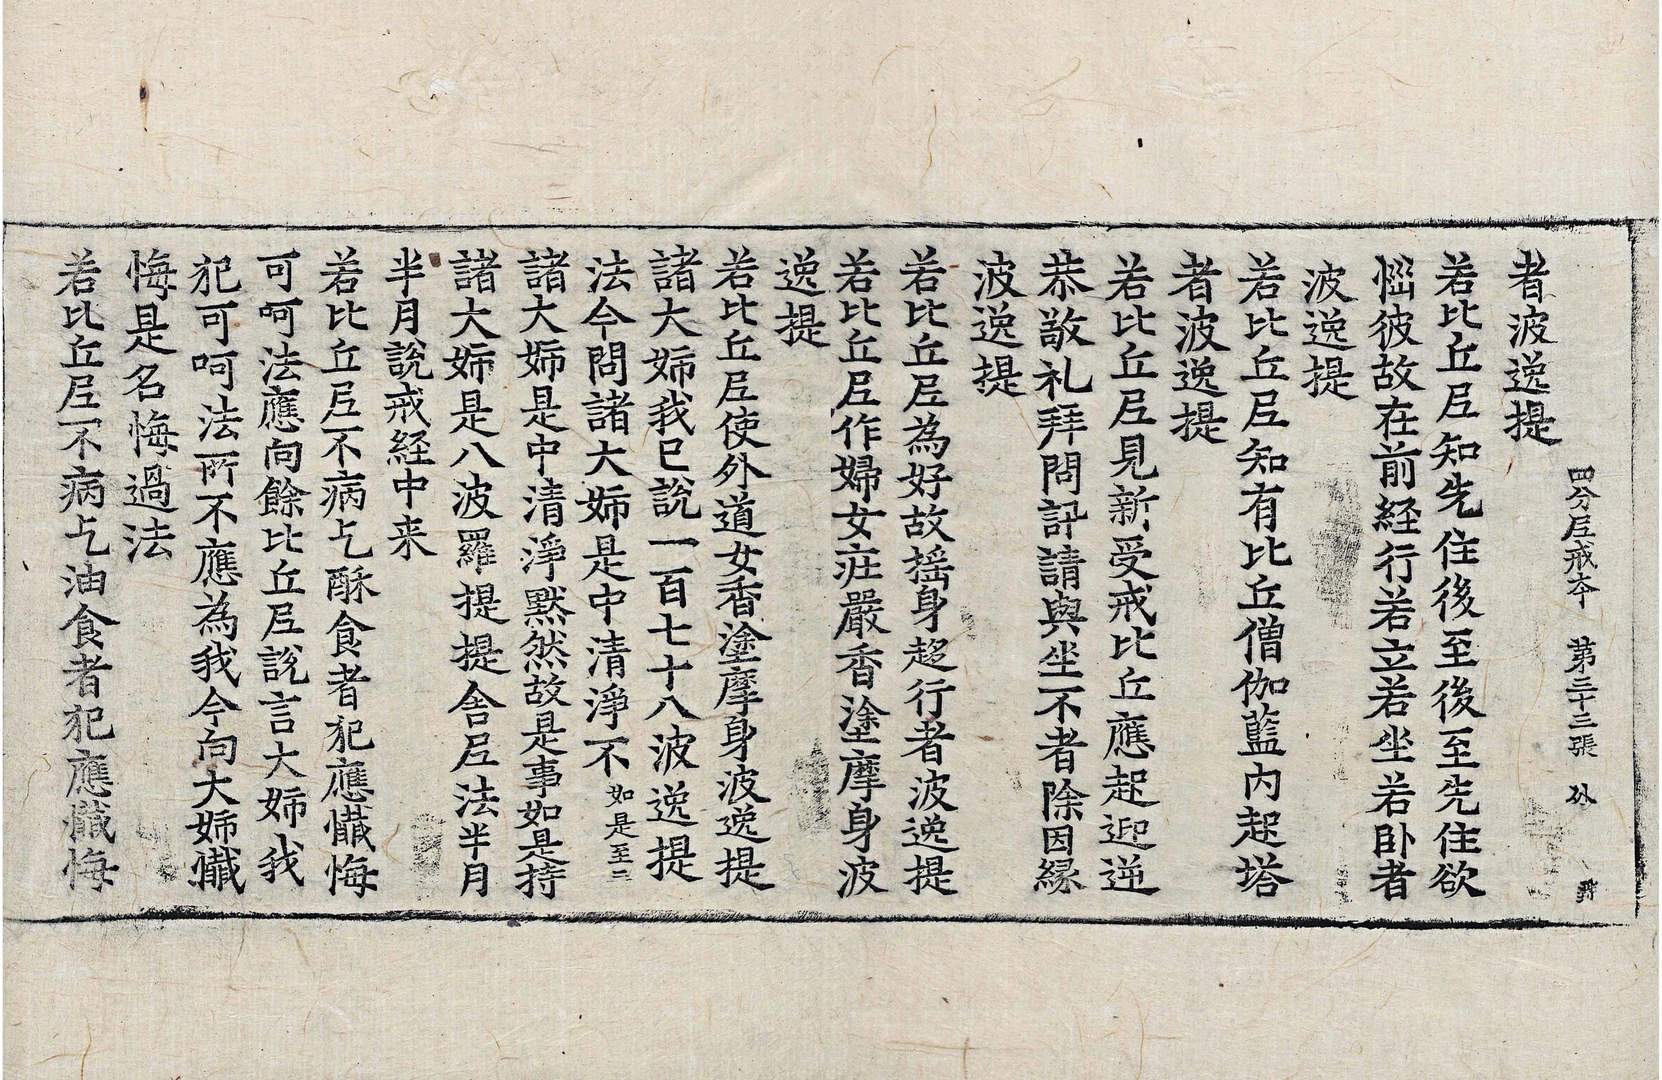 四分尼戒本 第三十三張 外
者波逸提
若比丘尼知先住後至後至先住欲
惱彼故在前経行若立若坐若卧者
波逸提
若比丘尼知有比丘僧伽藍内起塔
者波逸提
若比丘尼見新受戒比丘應起迎逆
恭敬礼拜問訊請與坐不者除因縁
波逸提
若比丘尼為好故揺身趍行者波逸提
若比丘尼作婦女庄嚴香塗摩身波
逸提
若比丘尼使外道女香塗摩身波逸提
諸大姉我已說一百七十八波逸提
法今問諸大姉是中清淨不如是至三
諸大姉是中清淨黙然故是事如是持
諸大姉是八波羅提提舍尼法半月
半月說戒経中来
若比丘尼不病乞酥食者犯應懺悔
可呵法應向餘比丘尼說言大姉我
犯可呵法所不應為我今向大姉懺
悔是名悔過法
若比丘尼不病乞油食者犯應懺悔